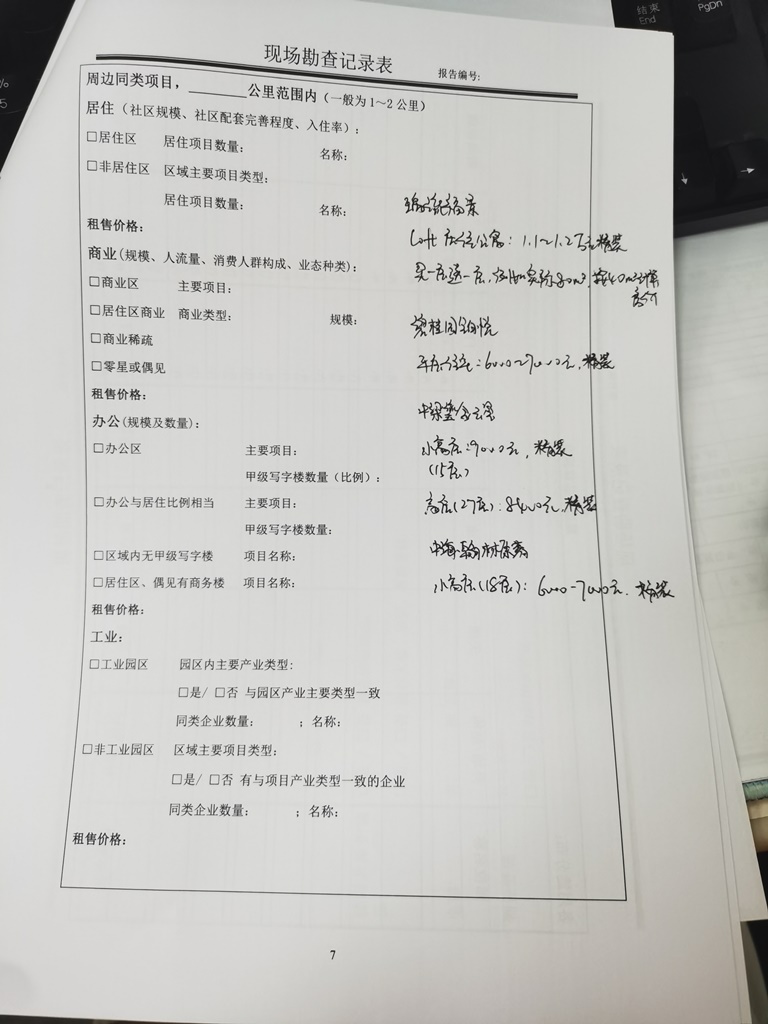 现场勘查记录表
报告编号:
周边同类项目，______公里范围内（一般为1～2公里）
居住（社区规模、社区配套完善程度、入住率）:
□居住区 居住项目数量: 名称:
□非居住区 区域主要项目类型:
居住项目数量: 名称:
租售价格:
Loft 居住公寓: 1.1～1.2万元 精装
商业(规模、人流量、消费人群构成、业态种类):
买一层送一层,
□商业区 主要项目:
□居住区商业 商业类型: 规模:
碧桂园
□商业稀疏
平层住宅: 6000~7000元, 精装
□零星或偶见
租售价格:
办公(规模及数量):
□办公区 主要项目:
小高层: 9000元, 精装
(15层)
甲级写字楼数量（比例）:
□办公与居住比例相当 主要项目:
高层(27层): 8400元, 精装
甲级写字楼数量:
□区域内无甲级写字楼 项目名称:
中海·翰林
□居住区、偶见有商务楼 项目名称:
小高层(18层): 6000-7000元, 精装
租售价格:
工业:
□工业园区 园区内主要产业类型:
□是/ □否 与园区产业主要类型一致
同类企业数量: ；名称:
□非工业园区 区域主要项目类型:
□是/ □否 有与项目产业类型一致的企业
同类企业数量: ；名称:
租售价格:
7
结束
End
PgDn
%
5